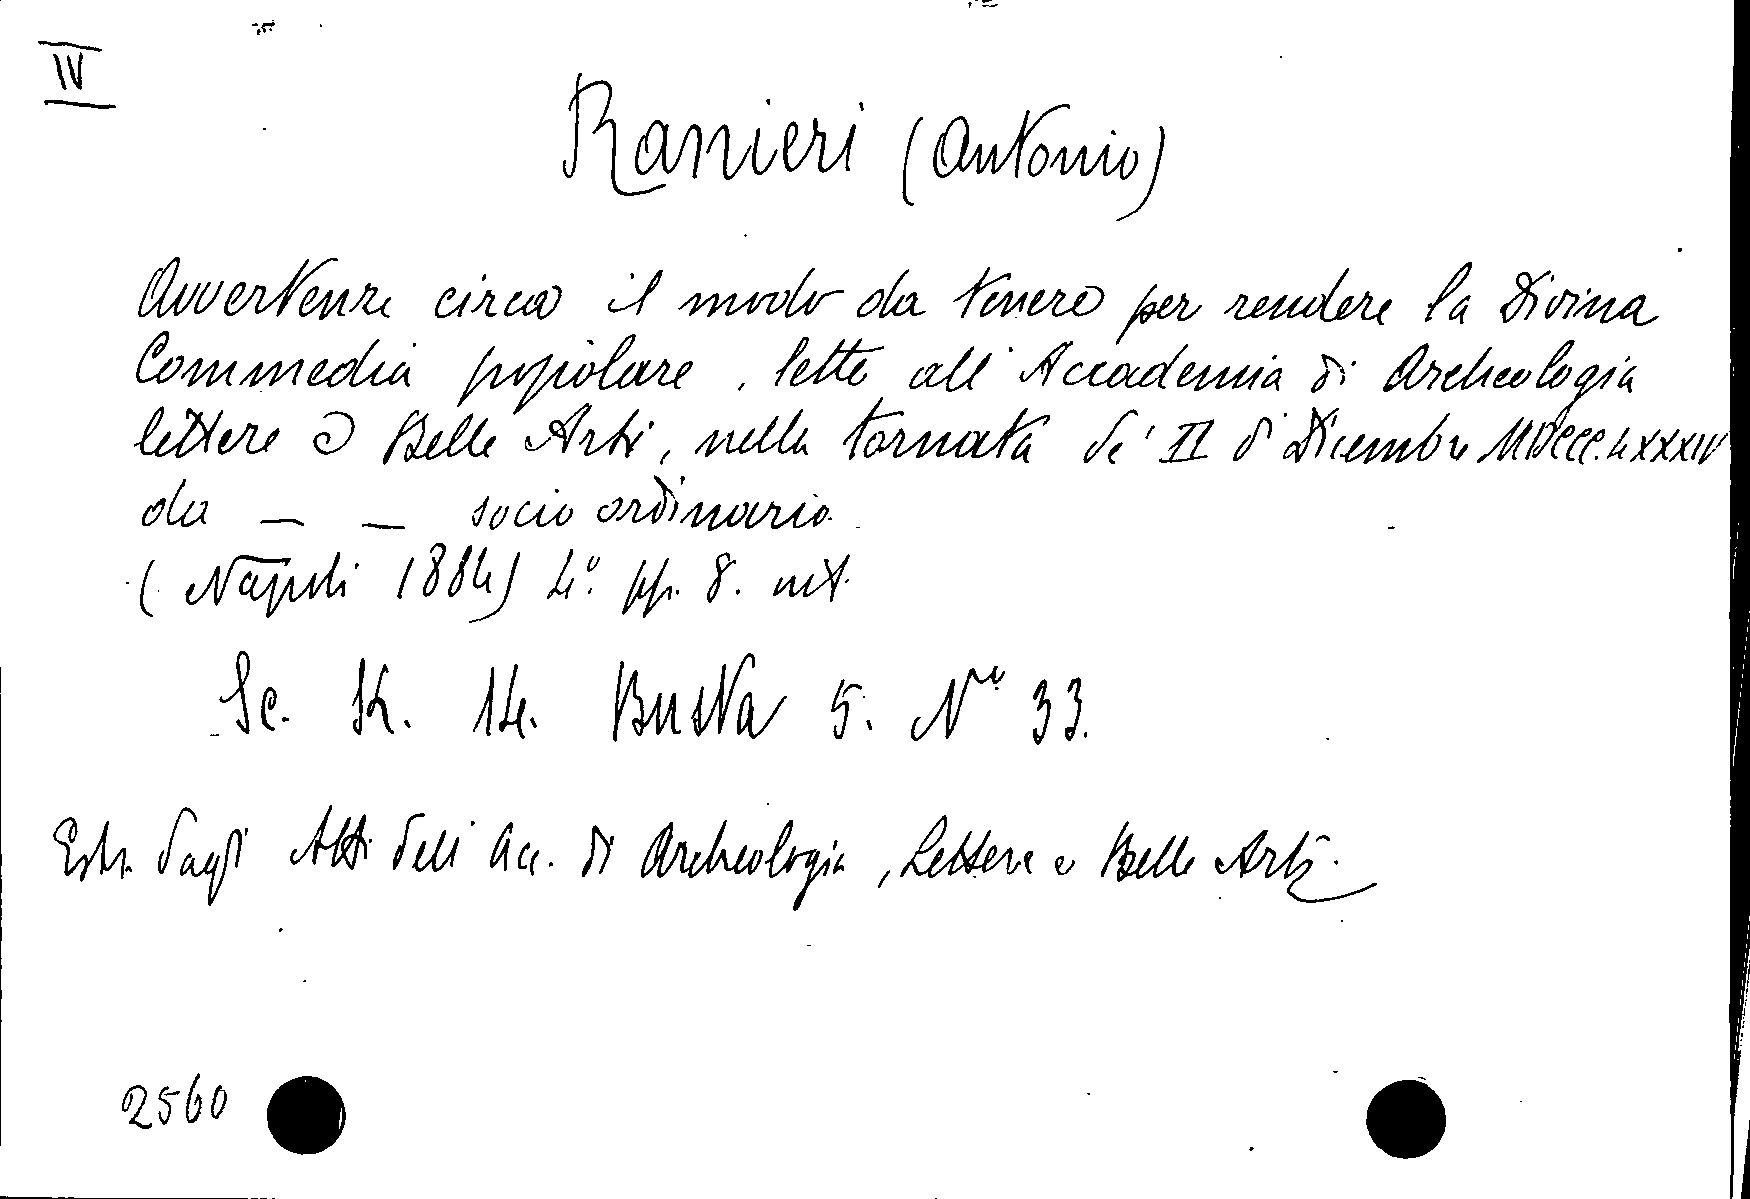 IV
Ranieri (Antonio)
Avvertenze circa il modo da tenere per rendere la Divina
Commedia popolare, lette all'Accademia di Archeologia
lettere e Belle Arti, nella tornata de' II di Dicembre MDCCCLXXXIV
da — — socio ordinario.
(Napoli 1884) 4.° pp. 8. nt.
Sc. K. 14. Busta 5. N.° 33.
Estr. dagli Atti dell'Acc. di Archeologia, Lettere e Belle Arti.
2560